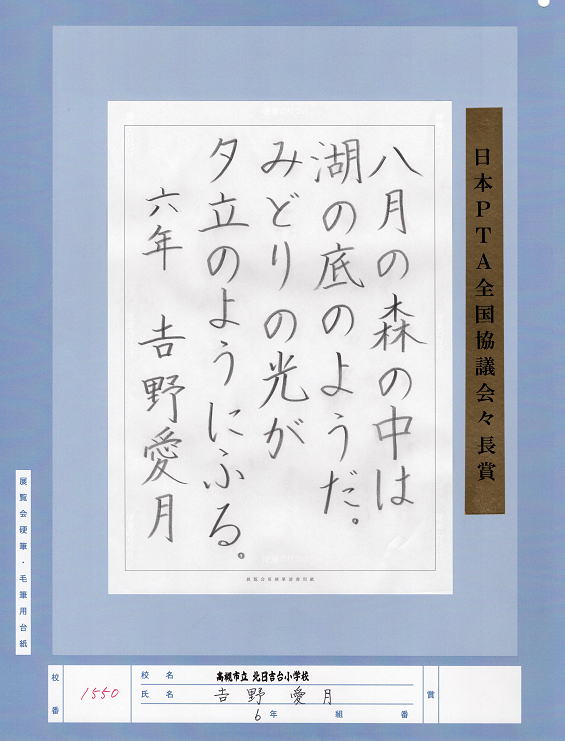 日本PTA全国協議会々長賞
八月の森の中は
湖の底のようだ。
みどりの光が
夕立のようにふる。
六年 吉野愛月
展覧会硬筆・毛筆用台紙
校番 1550
校名 高槻市立 北日吉台小学校
氏名 吉野愛月
6年 組 番
賞